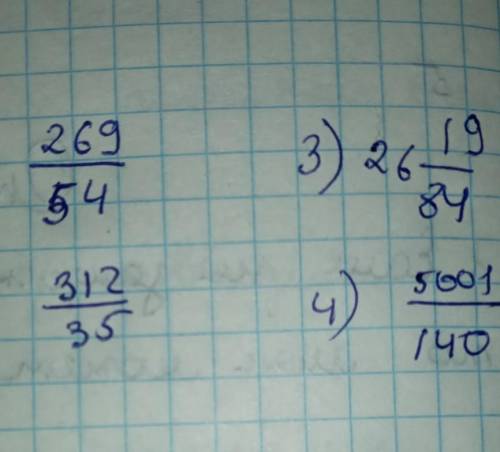 269/54 3) 26 19/84
312/35 4) 5001/140